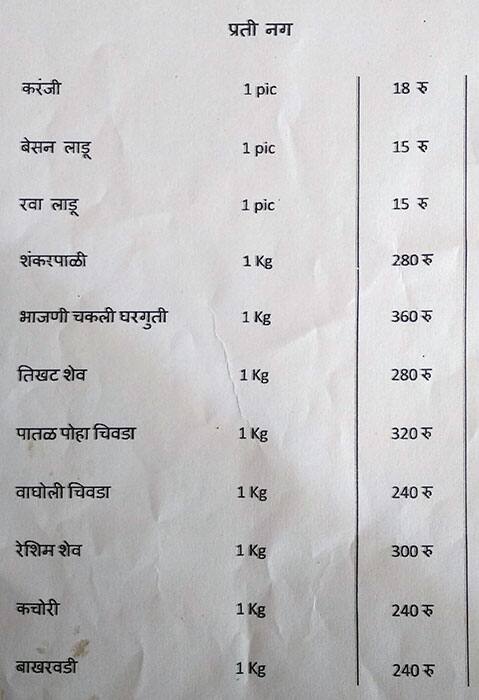 प्रती नग
करंजी 1 pic 18 रु
बेसन लाडू 1 pic 15 रु
रवा लाडू 1 pic 15 रु
शंकरपाळी 1 Kg 280 रु
भाजणी चकली घरगुती 1 Kg 360 रु
तिखट शेव 1 Kg 280 रु
पातळ पोहा चिवडा 1 Kg 320 रु
वाघोली चिवडा 1 Kg 240 रु
रेशिम शेव 1 Kg 300 रु
कचोरी 1 Kg 240 रु
बाखरवडी 1 Kg 240 रु